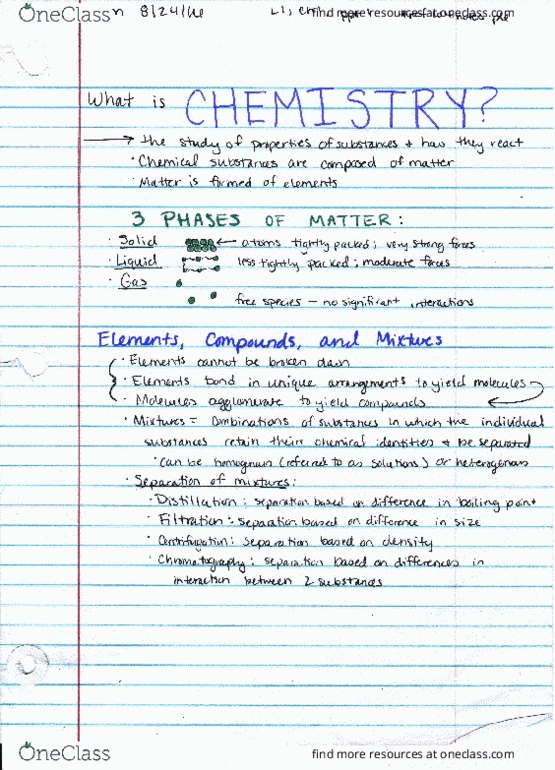 OneClass
8/24/16
find more resources at oneclass.com
What is CHEMISTRY?
→ the study of properties of substances + how they react
· Chemical substances are composed of matter
· Matter is formed of elements
3 PHASES OF MATTER:
· Solid ← atoms tightly packed; very strong forces
· Liquid less tightly packed; moderate forces
· Gas
free species – no significant interactions
Elements, Compounds, and Mixtures
· Elements cannot be broken down
· Elements bond in unique arrangements to yield molecules
· Molecules agglomerate to yield compounds
· Mixtures = Combinations of substances in which the individual
substances retain their chemical identities + be separated
· can be homogenous (referred to as solutions) or heterogenous
· Separation of mixtures:
· Distillation: separation based on difference in boiling point
· Filtration: separation based on difference in size
· Centrifugation: separation based on density
· Chromatography: separation based on differences in
interaction between 2 substances
OneClass
find more resources at oneclass.com